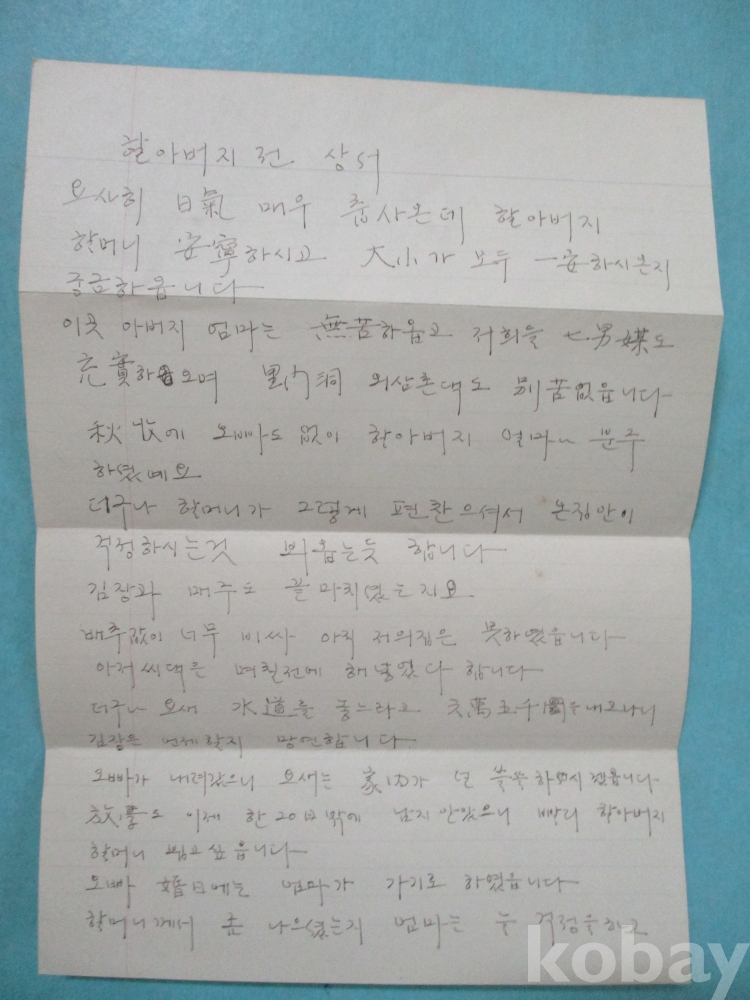 할아버지 전 상서
요사히 日氣 매우 춥사온데 할아버지
할머니 安寧하시고 大小가 모두 一安하시온지
궁금하옵니다
이곳 아버지 엄마는 無苦하옵고 저희들 七男妹도
充實하오며 里門洞 외삼촌댁도 別苦없읍니다
秋收에 오빠도 없이 할아버지 얼마나 분주
하셨예요
더구나 할머니가 그렇게 편찬으셔서 온집안이
걱정하시는것 뵈옵는듯 합니다
김장과 매주도 끝마치셨는지요
배추값이 너무 비싸 아직 저의집은 못하였읍니다
아저씨댁은 며칠전에 해 넣었다 합니다
더구나 요새 水道를 놓느라고 萬五千 내고나니
김장은 언제할지 망연합니다
오빠가 내려갔으니 요새는 家內가 덜 쓸쓸하시겠읍니다
放學도 이제 한 20日밖에 남지 안았으니 빨리 할아버지
할머니 뵙고 싶읍니다
오빠 婚日에는 엄마가 가기로 하였읍니다
할머니께서 좀 나으셨는지 엄마는 늘 걱정을하고
kobay